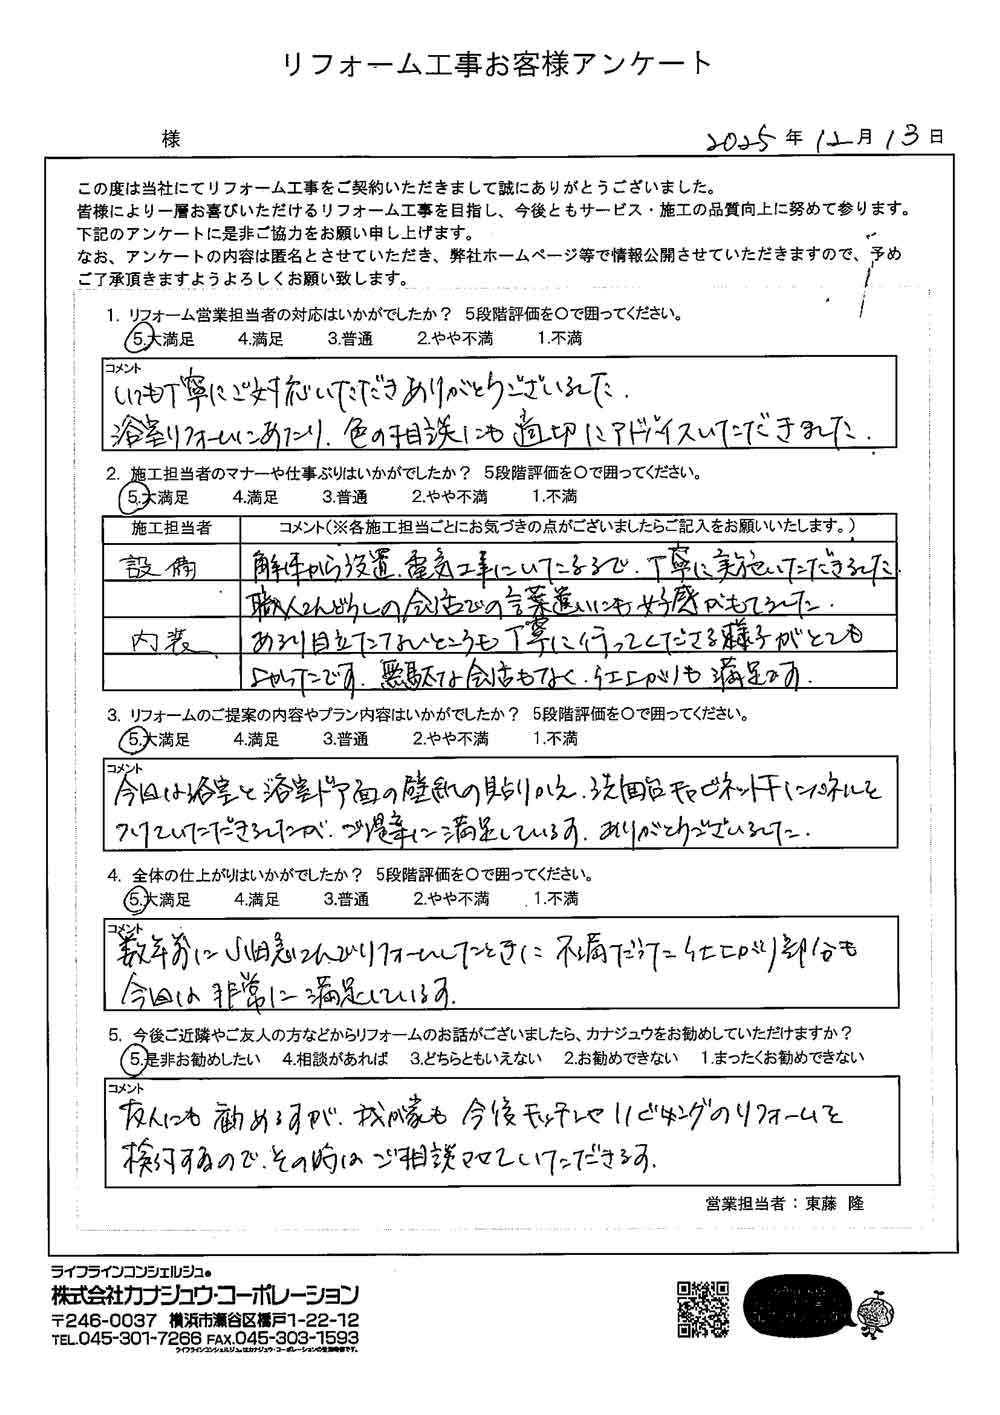 リフォーム工事お客様アンケート
様 2025年12月13日
この度は当社にてリフォーム工事をご契約いただきまして誠にありがとうございました。
皆様により一層お喜びいただけるリフォーム工事を目指し、今後ともサービス・施工の品質向上に努めて参ります。
下記のアンケートに是非ご協力をお願い申し上げます。
なお、アンケートの内容は匿名とさせていただき、弊社ホームページ等で情報公開させていただきますので、予め
ご了承頂きますようよろしくお願い致します。
1. リフォーム営業担当者の対応はいかがでしたか? 5段階評価を〇で囲ってください。
5.大満足 4.満足 3.普通 2.やや不満 1.不満
コメント
いつも丁寧にご対応いただきありがとうございました.
浴室リフォームにあたり、色の相談にも適切にアドバイスいただきました.
2. 施工担当者のマナーや仕事ぶりはいかがでしたか? 5段階評価を〇で囲ってください。
5.大満足 4.満足 3.普通 2.やや不満 1.不満
施工担当者 コメント(※各施工担当ごとにお気づきの点がございましたらご記入をお願いいたします。)
設備 解体から設置、電気工事にいたるまで、丁寧に実施いただきました
職人さんどうしの会話での言葉遣いにも好感がもてました.
内装 あまり目立たないところも丁寧に行ってくださる様子がとても
よかったです。無駄な会話もなく、仕上がりも満足です.
3. リフォームのご提案の内容やプラン内容はいかがでしたか? 5段階評価を〇で囲ってください。
5.大満足 4.満足 3.普通 2.やや不満 1.不満
コメント
今回は浴室と浴室ドア面の壁紙の貼りかえ、洗面台キャビネット下にパネルを
つけていただきましたが、ご提案に満足しています。ありがとうございました.
4. 全体の仕上がりはいかがでしたか? 5段階評価を〇で囲ってください。
5.大満足 4.満足 3.普通 2.やや不満 1.不満
コメント
数年前に小田急さんでリフォームしたときに不満だった仕上がり部分も
今回は非常に満足しています.
5. 今後ご近隣やご友人の方などからリフォームのお話がございましたら、カナジュウをお勧めしていただけますか?
5.是非お勧めしたい 4.相談があれば 3.どちらともいえない 2.お勧めできない 1.まったくお勧めできない
コメント
友人にも勧めますが、我が家も今後キッチンやリビングのリフォームを
検討するので、その時はご相談させていただきます.
営業担当者:東藤 隆
ライフラインコンシェルジュ®
株式会社カナジュウ・コーポレーション
〒246-0037 横浜市瀬谷区橋戸1-22-12
TEL.045-301-7266 FAX.045-303-1593
ライフラインコンシェルジュ®はカナジュウ・コーポレーションの登録商標です。